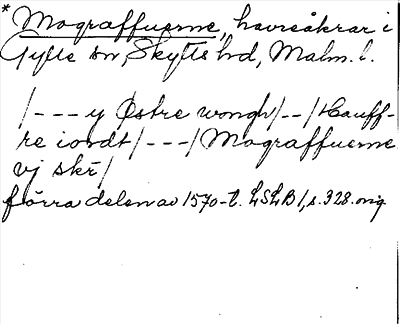 * Mograffuerne, havreåkrar i
Gylle sn, Skytts hd, Malm. l.
/---y Østre wongh/--/Hauff-
re iordt/---/Mograffuerne
vj skr̄/
förra delen av 1570-t. LSLB1, s. 328. orig